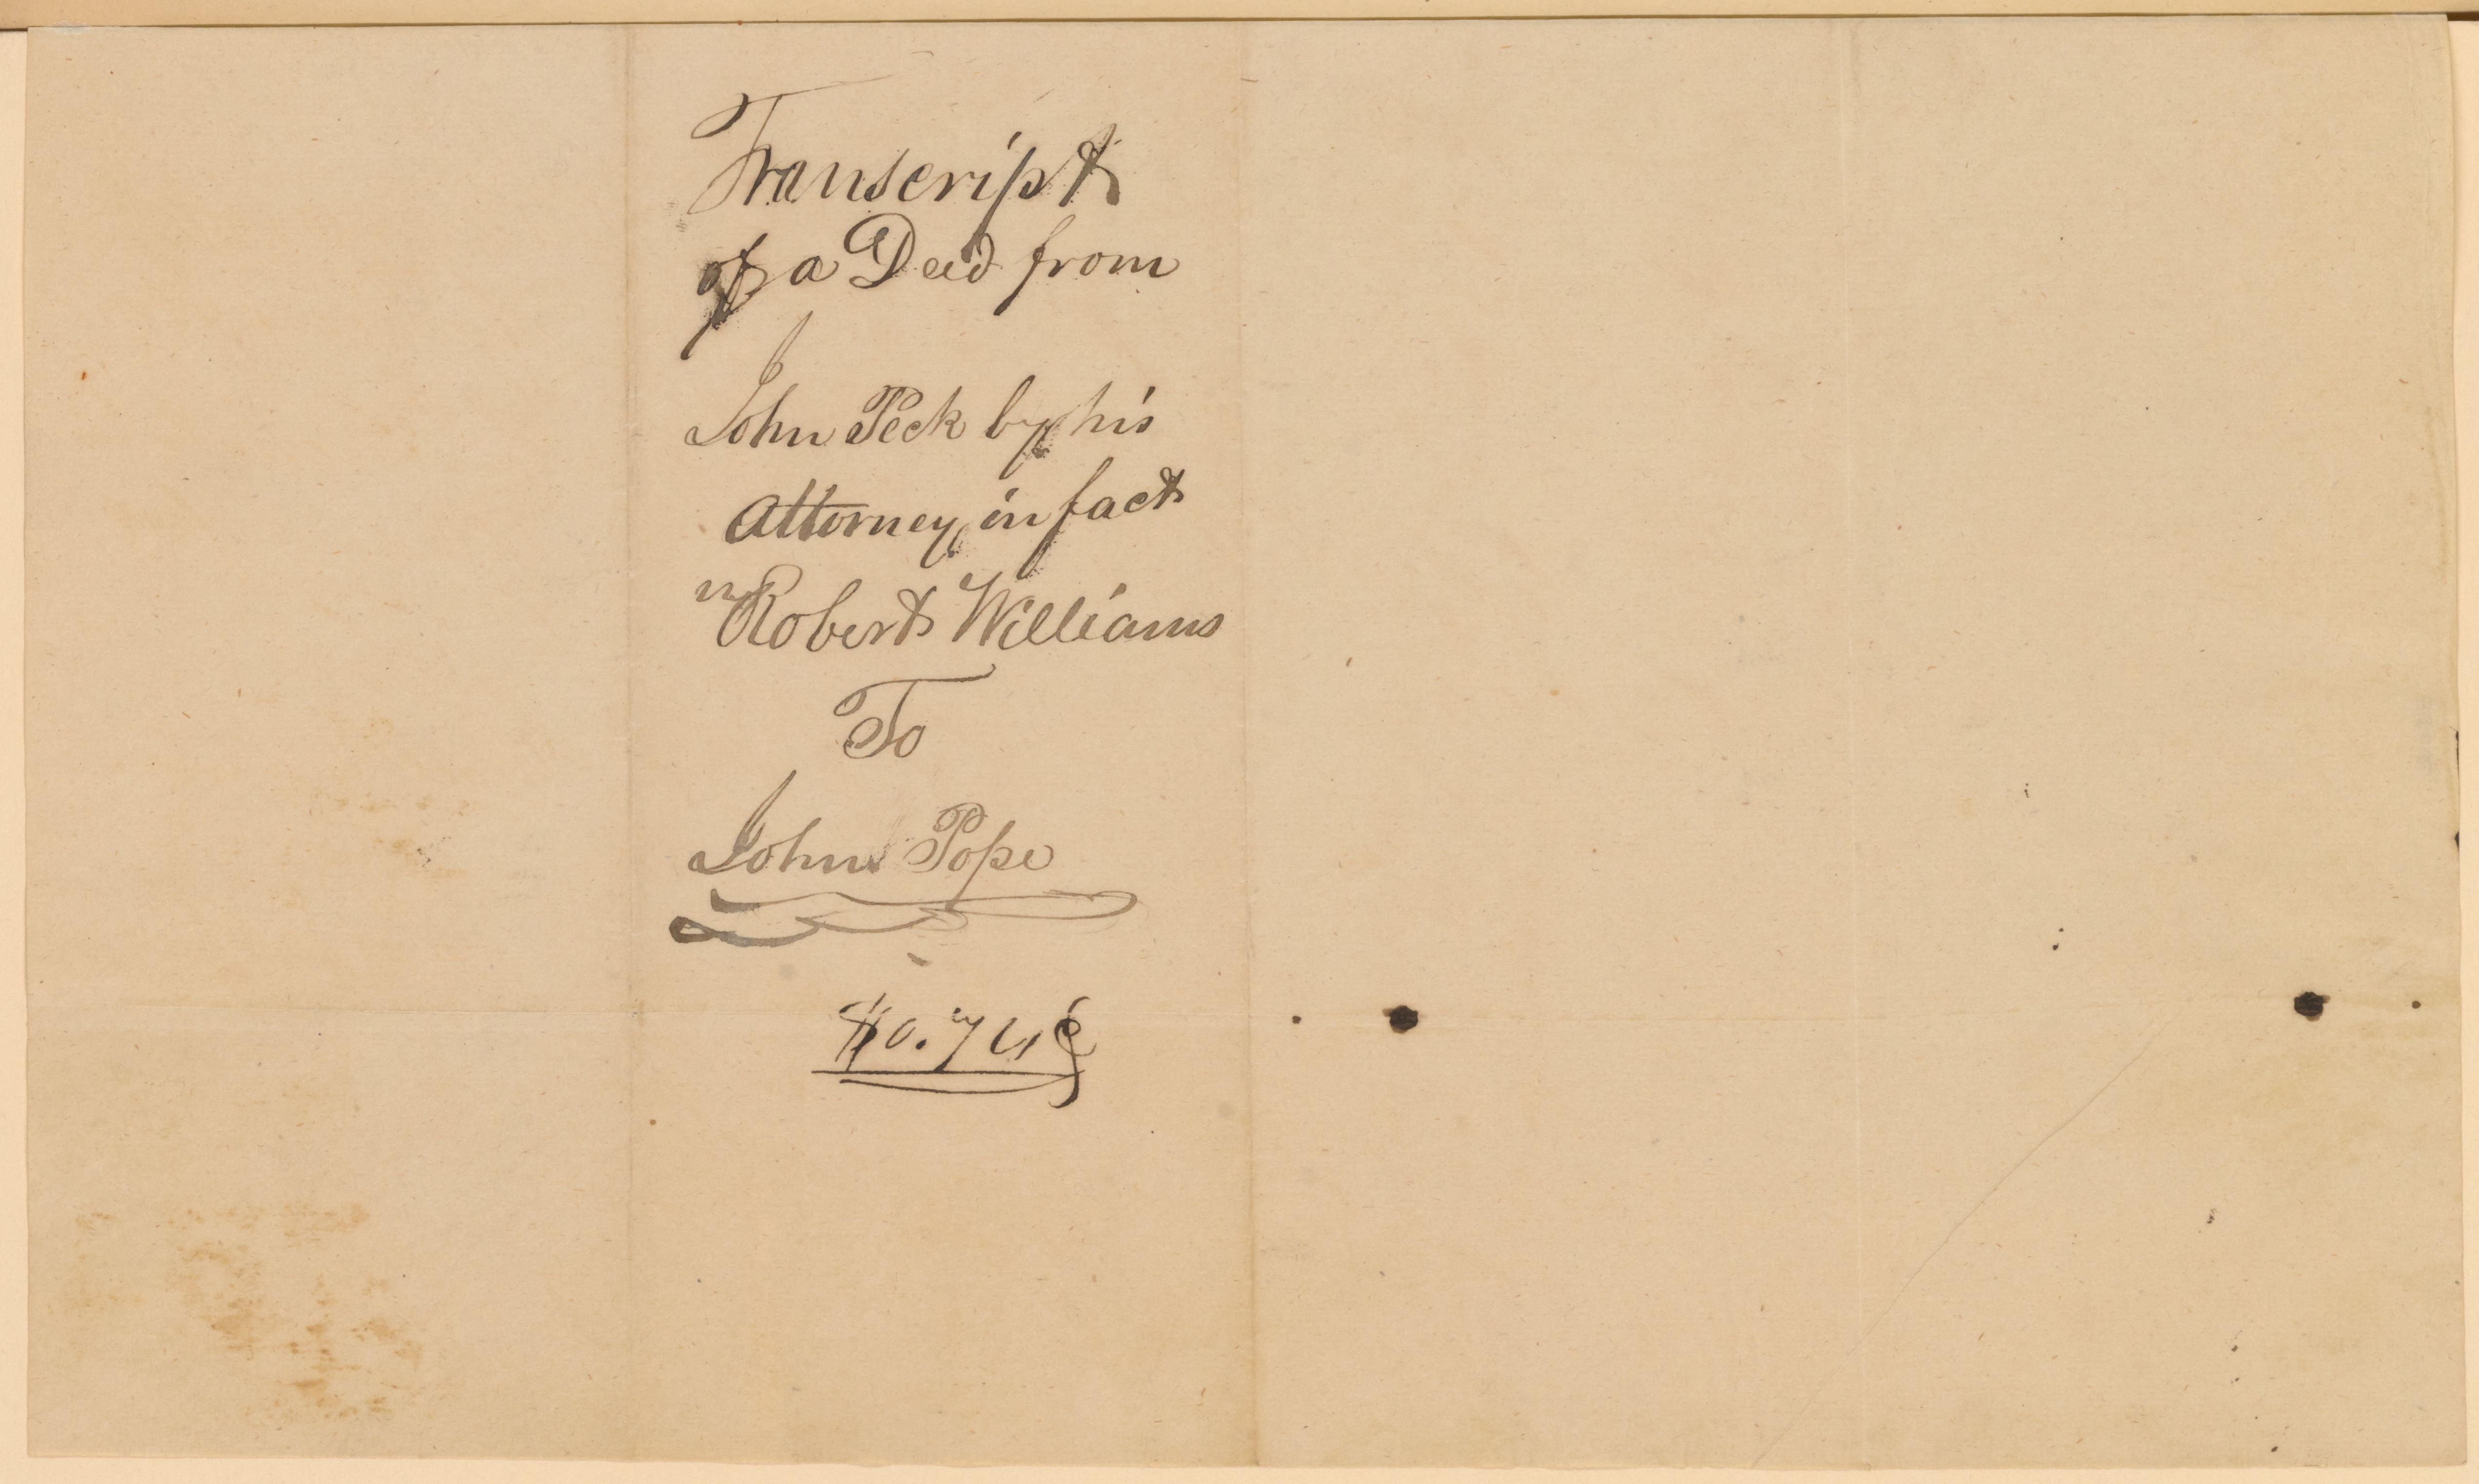 Transcript
of a Deed from
John Peck by his
Attorney in fact
Robert Williams
To
John Pope